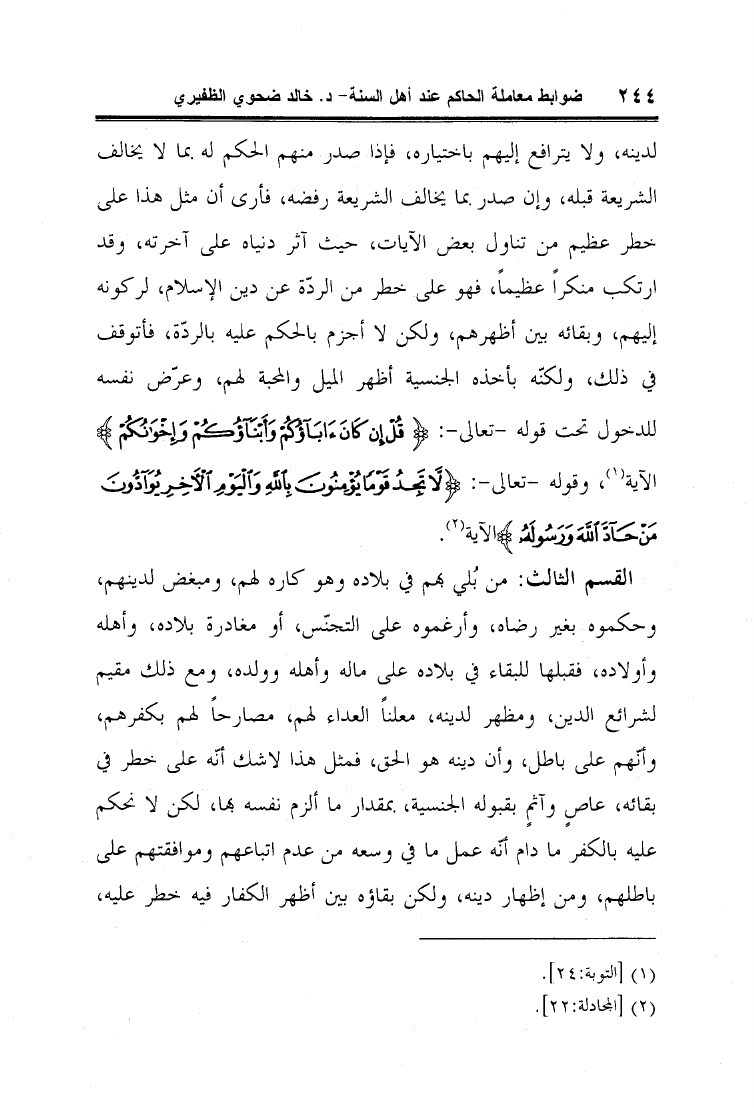 ٢٤٤ ضوابط معاملة الحاكم عند أهل السنة- د. خالد ضحوي الظفيري
لدينه، ولا يترافع إليهم باختياره، فإذا صدر منهم الحكم له بما لا يخالف
الشريعة قبله، وإن صدر بما يخالف الشريعة رفضه، فأرى أن مثل هذا على
خطر عظيم من تناول بعض الآيات، حيث آثر دنياه على آخرته، وقد
ارتكب منكراً عظيماً، فهو على خطر من الردّة عن دين الإسلام، لركونه
إليهم، وبقائه بين أظهرهم، ولكن لا أجزم بالحكم عليه بالردّة، فأتوقف
في ذلك، ولكنّه بأخذه الجنسية أظهر الميل والمحبة لهم، وعرّض نفسه
للدخول تحت قوله -تعالى-: ﴿ قُلْ إِن كَانَ ءَابَآؤُكُمْ وَأَبْنَآؤُكُمْ وَإِخْوَٰنُكُمْ ﴾
الآية(١)، وقوله -تعالى-: ﴿لَّا تَجِدُ قَوْمًا يُؤْمِنُونَ بِٱللَّهِ وَٱلْيَوْمِ ٱلْأَخِرِ يُوَآدُّونَ
مَنْ حَآدَّ ٱللَّهَ وَرَسُولَهُۥ ﴾الآية(٢).
القسم الثالث: من بُلي بهم في بلاده وهو كاره لهم، ومبغض لدينهم،
وحكموه بغير رضاه، وأرغموه على التجنّس، أو مغادرة بلاده، وأهله
وأولاده، فقبلها للبقاء في بلاده على ماله وأهله وولده، ومع ذلك مقيم
لشرائع الدين، ومظهر لدينه، معلناً العداء لهم، مصارحاً لهم بكفرهم،
وأنّهم على باطل، وأن دينه هو الحق، فمثل هذا لاشك أنّه على خطر في
بقائه، عاصٍ وآثمٍ بقبوله الجنسية، بمقدار ما ألزم نفسه بها، لكن لا نحكم
عليه بالكفر ما دام أنّه عمل ما في وسعه من عدم اتباعهم وموافقتهم على
باطلهم، ومن إظهار دينه، ولكن بقاؤه بين أظهر الكفار فيه خطر عليه،
(١) [التوبة:٢٤].
(٢) [المجادلة:٢٢].